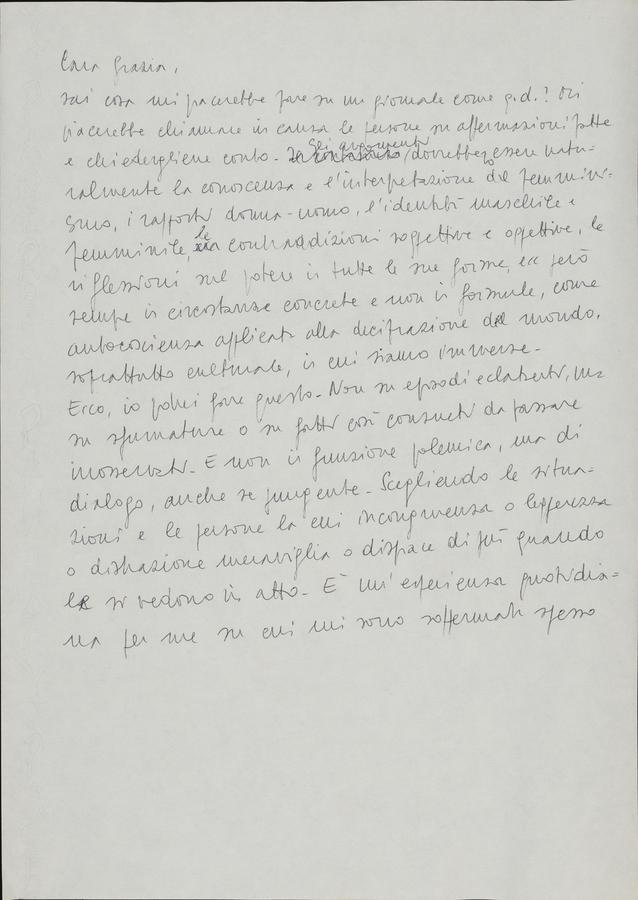 Cara Grazia,
sai cosa mi piacerebbe fare su un giornale come q.d.? Mi
piacerebbe chiamare in causa le persone su affermazioni fatte
e chiedergliene conto - Gli argomenti dovrebbero essere natu-
ralmente la conoscenza e l'interpretazione del femmini-
smo, i rapporti donna-uomo, l'identità maschile e
femminile, le contraddizioni soggettive e oggettive, le
riflessioni sul potere in tutte le sue forme, ecc però
sempre in circostanze concrete e non in formule, come
autocoscienza applicata alla decifrazione del mondo,
soprattutto culturale, in cui siamo immerse -
Ecco, io potrei fare questo - Non su episodi eclatanti, ma
su sfumature o su fatti così consueti da passare
inosservati - E non in funzione polemica, ma di
dialogo, anche se pungente - Scegliendo le situa-
zioni e le persone la cui incongruenza o leggerezza
o distrazione meraviglia o dispiace di più quando
le si vedono in atto - È un'esperienza quotidia-
na per me su cui mi sono soffermata spesso